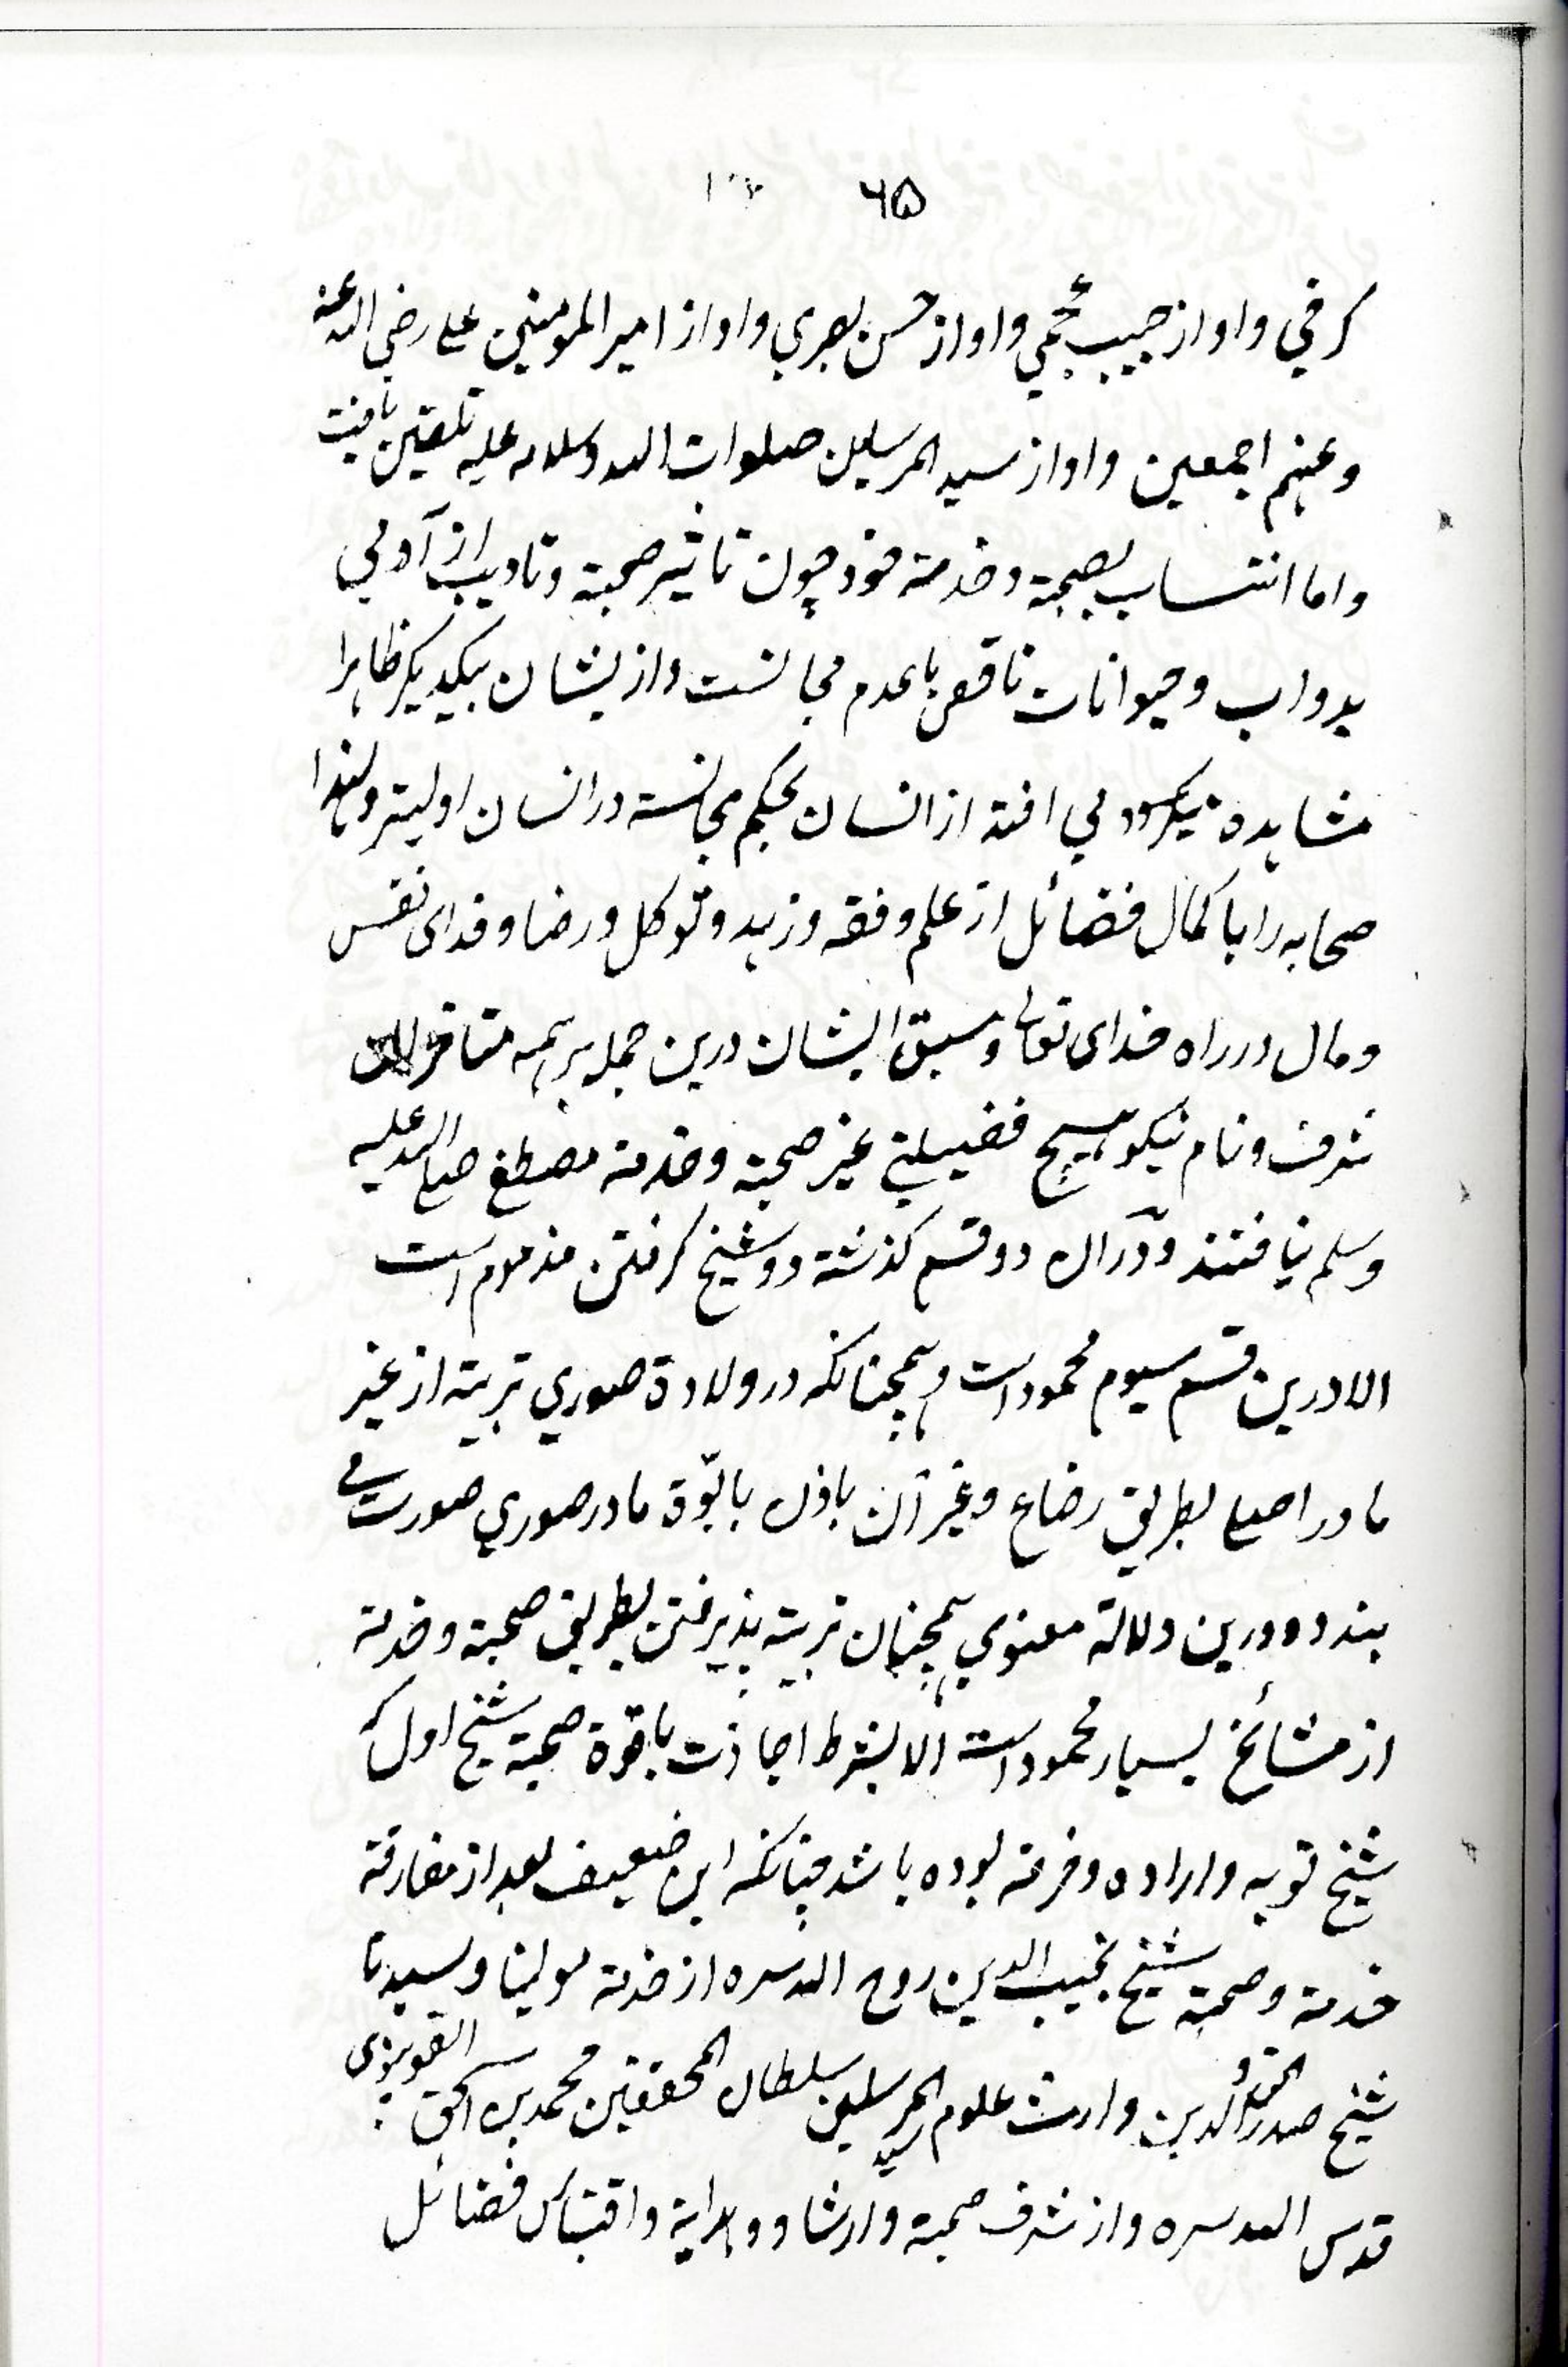 ۶۵
کرخي و او از حبیب عجمي و او از حسن بصري و او از امیر المومنین علی رضي الله عنه
و عنهم اجمعین و او از سید المرسلین صلوات الله و سلامه علیه تلقین یافت
و اما انتساب بصحبة و خدمة خود چون تاثیر صحبة و تادیب از آدمي
بدواب و حیوانات ناقص با عدم مجانست و از یشان بیکدیکر ظاهرا
مشاهده میکرود مي افتد از انسان بحکم مجانسة در انسان اولیتر و لهذا
صحابه را با کمال فضائل از علم و فقه و زهد و توکل و رضا و فدای نفس
و مال در راه خدای تعالی و سبق ایشان درین جمله بر همه متاخران
شرف و نام نیکو بهیچ فضیلتي غیر صحبة و خدمة مصطفی صلی الله علیه
و سلم نیافتند و در ان دو قسم کذشته دو شیخ کرفتن مذموم است
الا درین قسم سیوم محمود است و همچنانکه در ولادة صوري تربیة از غیر
مادر اصلی بطریق رضاع و غیر آن باذن با ابوة مادر صوري صورت مي
بندد و درین ولادة معنوي همچنان تربیة پذیرفتن بطریق صحبة و خدمة
از مشائخ بسیار محمود است الا بشرط اجازت یا قوة صحبة شیخ اول که
شیخ توبه و اراده و خرقه بوده باشد چنانکه این ضعیف بعد از مفارقة
خدمة و صحبة شیخ نجیب الدین روح الله سره از خدمة مولینا و سیدنا
شیخ صدر الحق و الدین وارث علوم سید المرسلین سلطان المحققین محمد بن اسحق القونوی
قدس الله سره و از شرف صحبة و ارشاد و هدایة و اقتباس فضائل